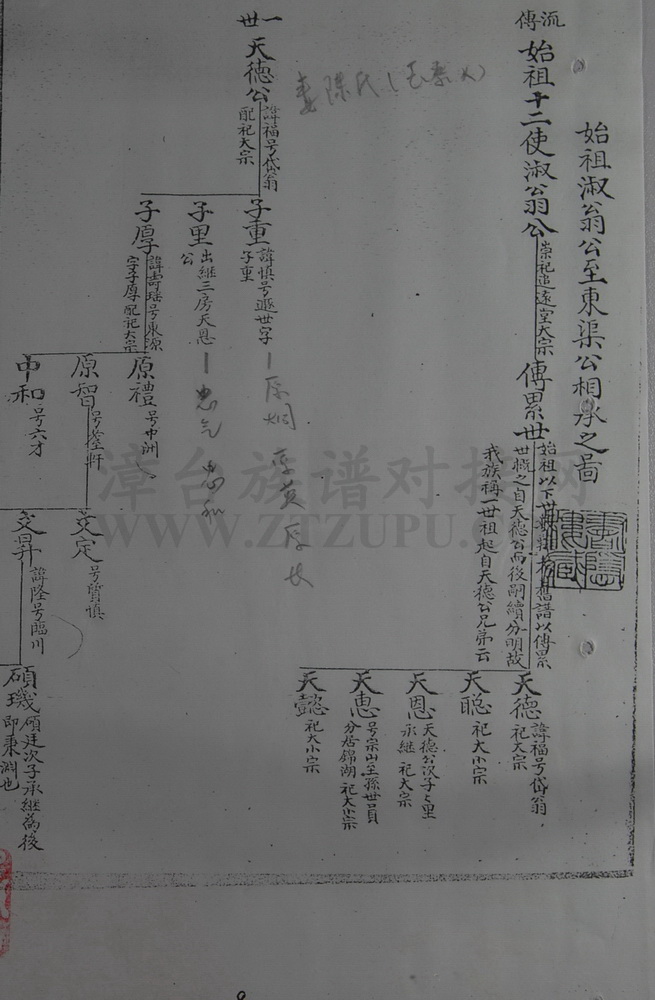 始祖淑翁公至東渠公相承之啚
流傳
始祖十二使淑翁公
崇祀追遠堂大宗
傳累世
始祖以下世
舊譜以傳累
世概之自天德公而後嗣續分明故
我族稱一世祖起自天德公兄弟云
天德
諱福号岱翁
祀大宗
天聪
祀大小宗
天恩
天德公次子子里
承継 祀大宗
天惠
号宗山
分居錦湖 祀大小宗
天懿
祀大小宗
一世
天德公
諱福号岱翁
配祀大宗
妻陈氏
子重
諱慎号遯世字
子重
子里
出継三房天恩
公
子厚
諱壽瑶号東源
字子厚配祀大宗
原禮
号中洲
原智
号崟軒
中和
号六才
奕定
号質慎
奕昇
諱隆号臨川
碩璣
碩廷次子承継為後
即東渊也
漳台族谱对接网
WWW.ZTZUPU.COM